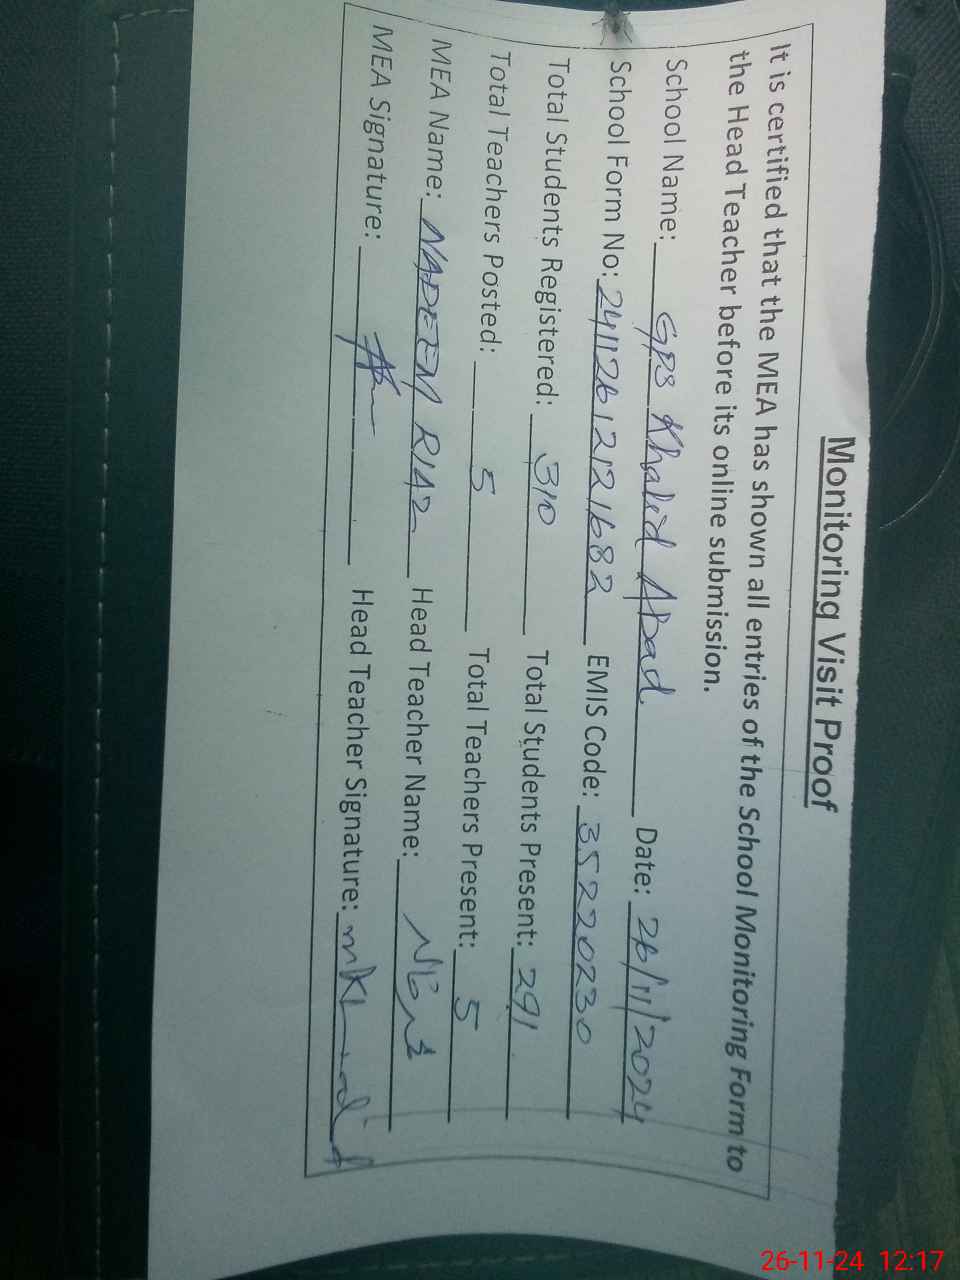 Monitoring Visit Proof
It is certified that the MEA has shown all entries of the School Monitoring Form to
the Head Teacher before its online submission.
School Name: GPS Khalid Abad Date: 26/11/2024
School Form No: 24112612121682 EMIS Code: 35220230
Total Students Registered: 310 Total Students Present: 291
Total Teachers Posted: 5 Total Teachers Present: 5
MEA Name: NADEEM RIAZ Head Teacher Name:
MEA Signature: Head Teacher Signature:
26-11-24 12:17